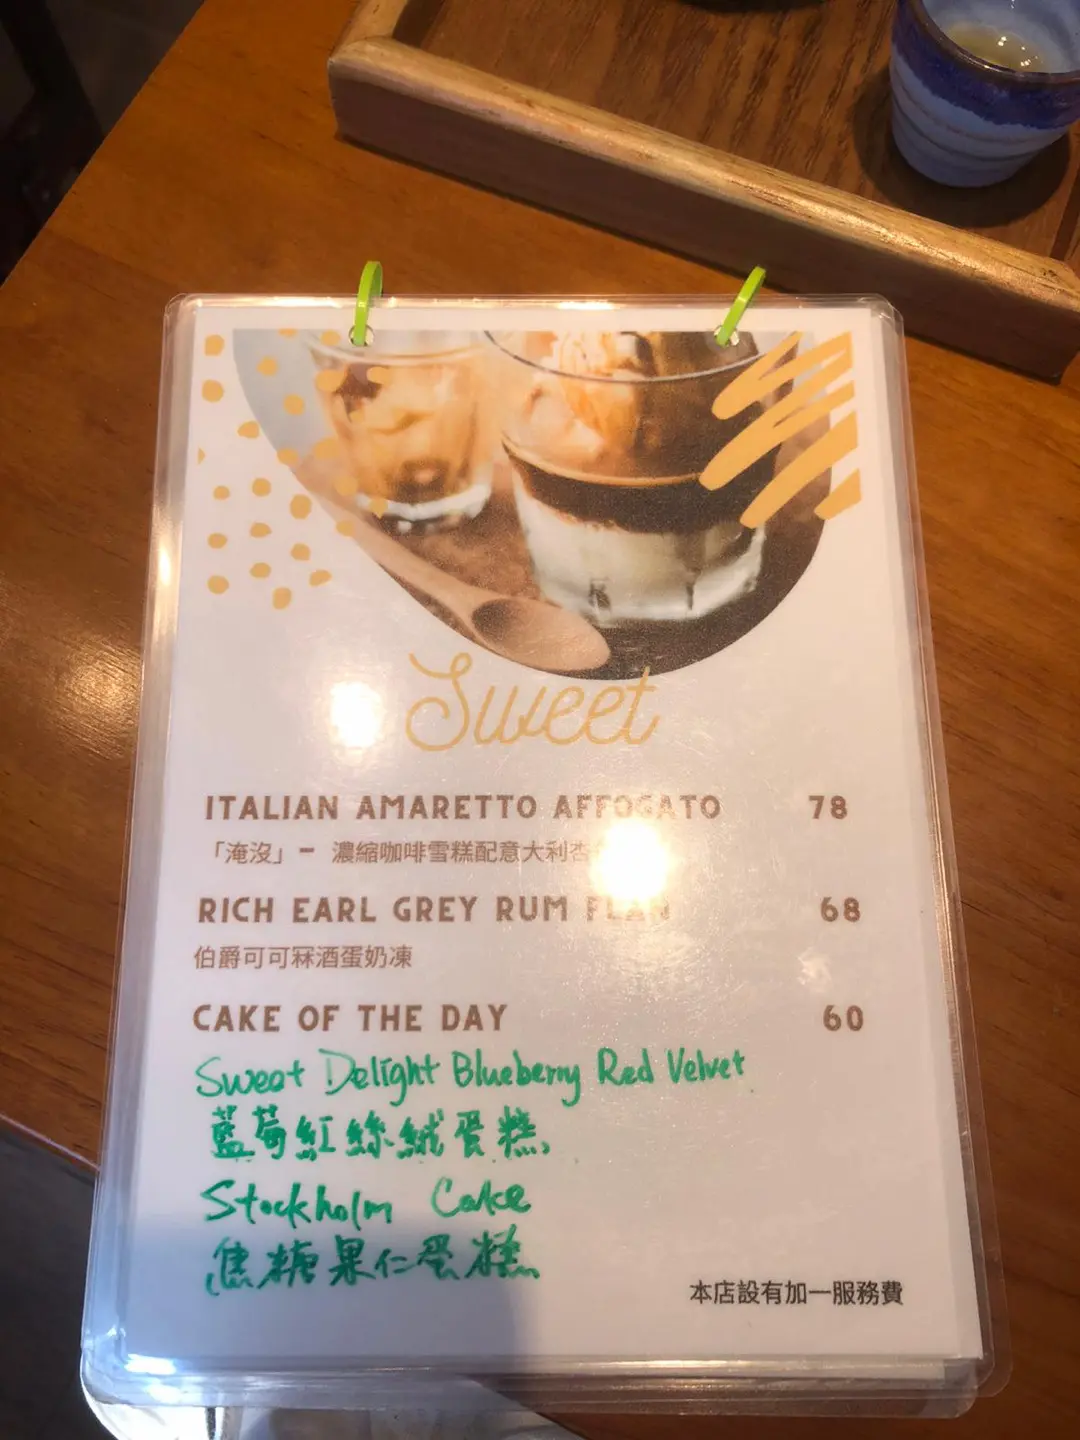 Sweet
ITALIAN AMARETTO AFFOGATO 78
「淹沒」- 濃縮咖啡雪糕配意大利杏
RICH EARL GREY RUM FLAN 68
伯爵可可冧酒蛋奶凍
CAKE OF THE DAY 60
Sweet Delight Blueberry Red Velvet
藍莓紅絲絨蛋糕
Stockholm Cake
焦糖果仁蛋糕
本店設有加一服務費